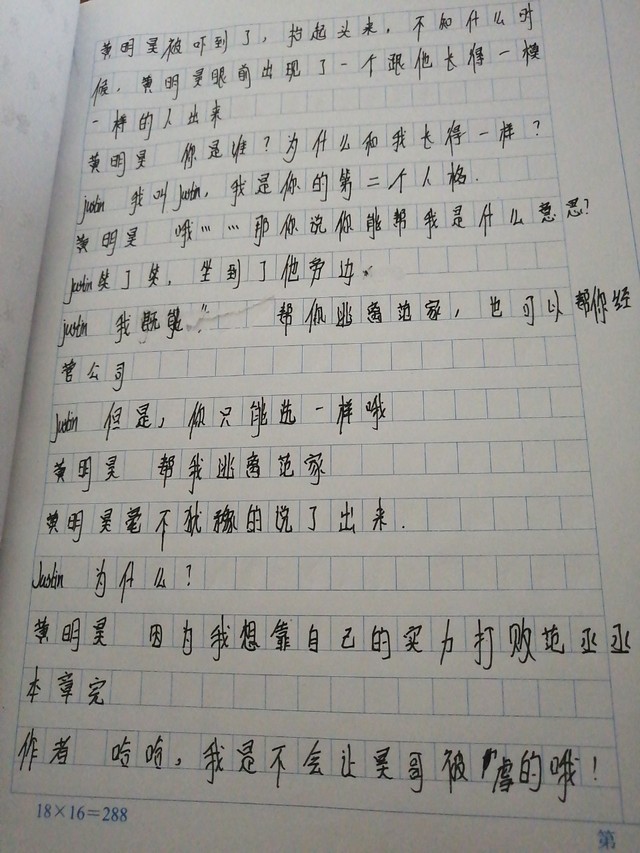 黄明昊被吓到了，抬起头来，不知什么时
候，黄明昊眼前出现了一个跟他长得一模
一样的人出来
黄明昊 你是谁？为什么和我长得一样？
justin 我叫justin，我是你的第二个人格.
黄明昊 哦……那你说你能帮我是什么意思?
justin笑了笑，坐到了他旁边.
justin 我既能 帮你逃离范家，也可以帮你经
营公司
justin 但是，你只能选一样哦
黄明昊 帮我逃离范家
黄明昊毫不犹稼的说了出来.
Justin 为什么？
黄明昊 因为我想靠自己的实力打败范丞丞
本章完
作者 哈哈，我是不会让昊哥被虐的哦！
18×16=288
第